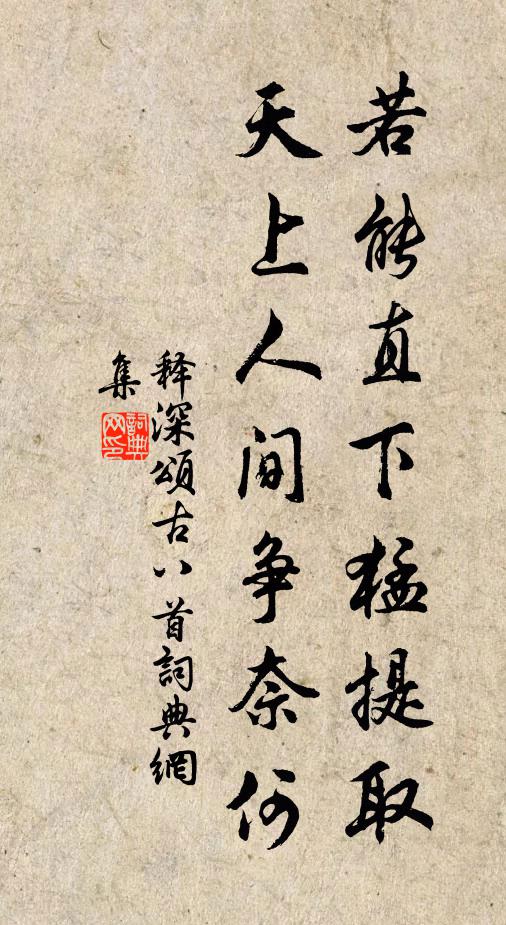 若能直下猛提取
天上人间争奈何
释深頌古八首詞典網
集
詞典
网印